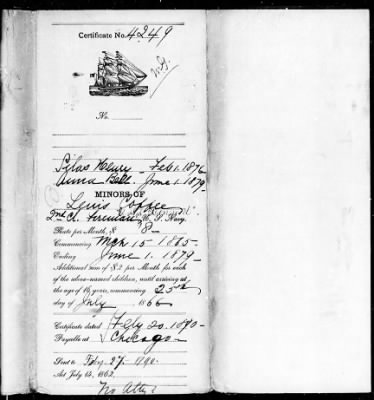 Certificate No. 4249
N.G.
No.
Silas Henry - Feb 1. 1876
Anna Bell. June 1. 1879.
MINORS OF
Lewis Coffee
2nd Cl. Fireman U. S. Navy
Rate per Month, $ 8-
Commencing Mch 15 1865-
Ending June 1. 1879-
Additional sum of $2 per Month for each
of the above-named children, until arriving at
the age of 16 years, commencing 25th
day of July 1866
Certificate dated Feby 20. 1890-
Payable at Chicago-
Sent to Feby. 27- 1890.
Act July 14, 1862.
No Atty.